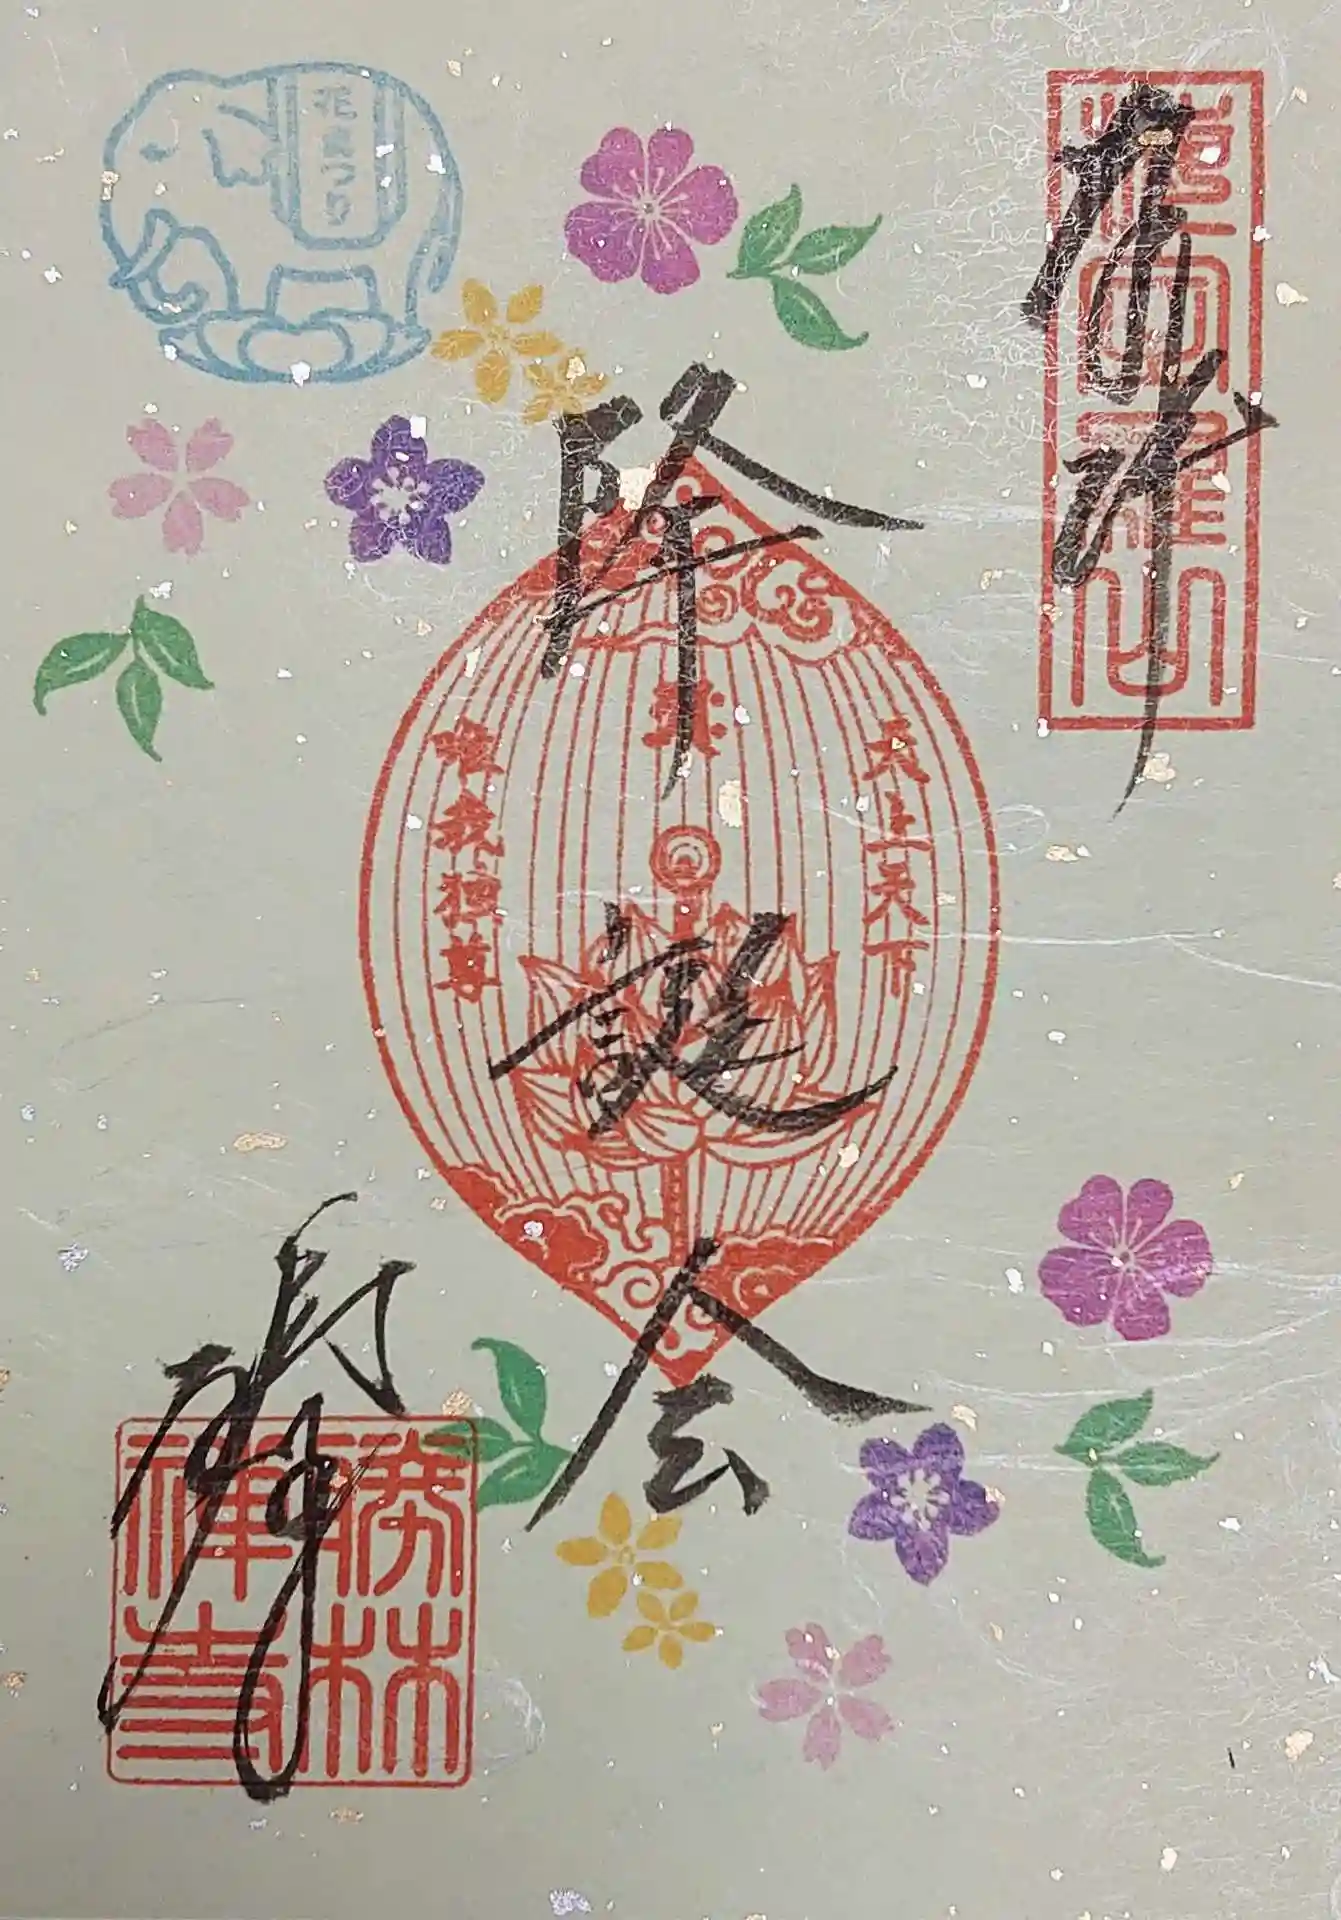 奉拝
花まつり
降誕会
天上天下
唯我独尊
勝林
禅寺